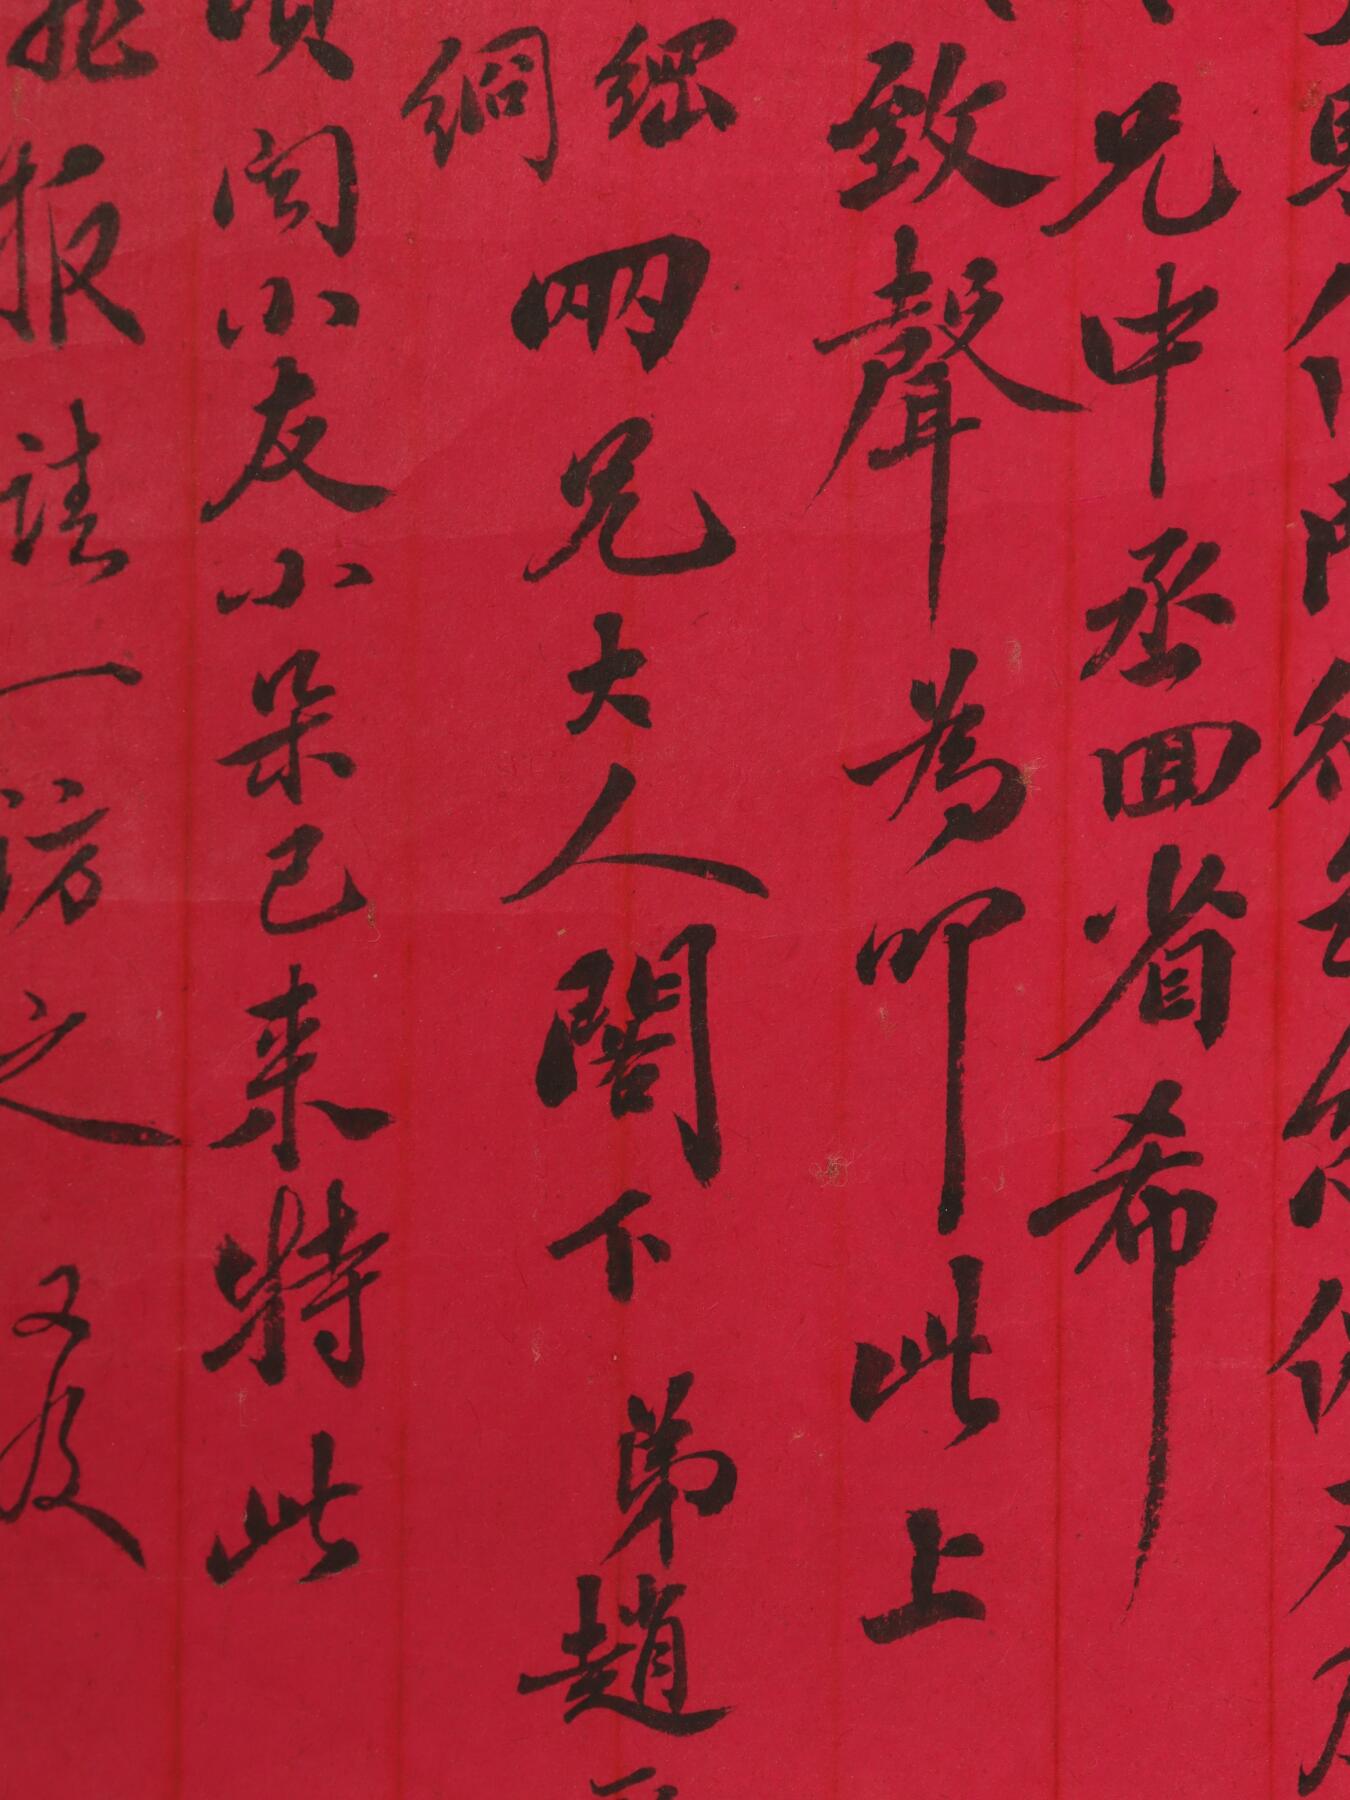 兄中丞回省希
致聲為叩此上
絅
四兄大人閣下 弟趙
頃聞小友小朵已來特此
報請一訪之 又及